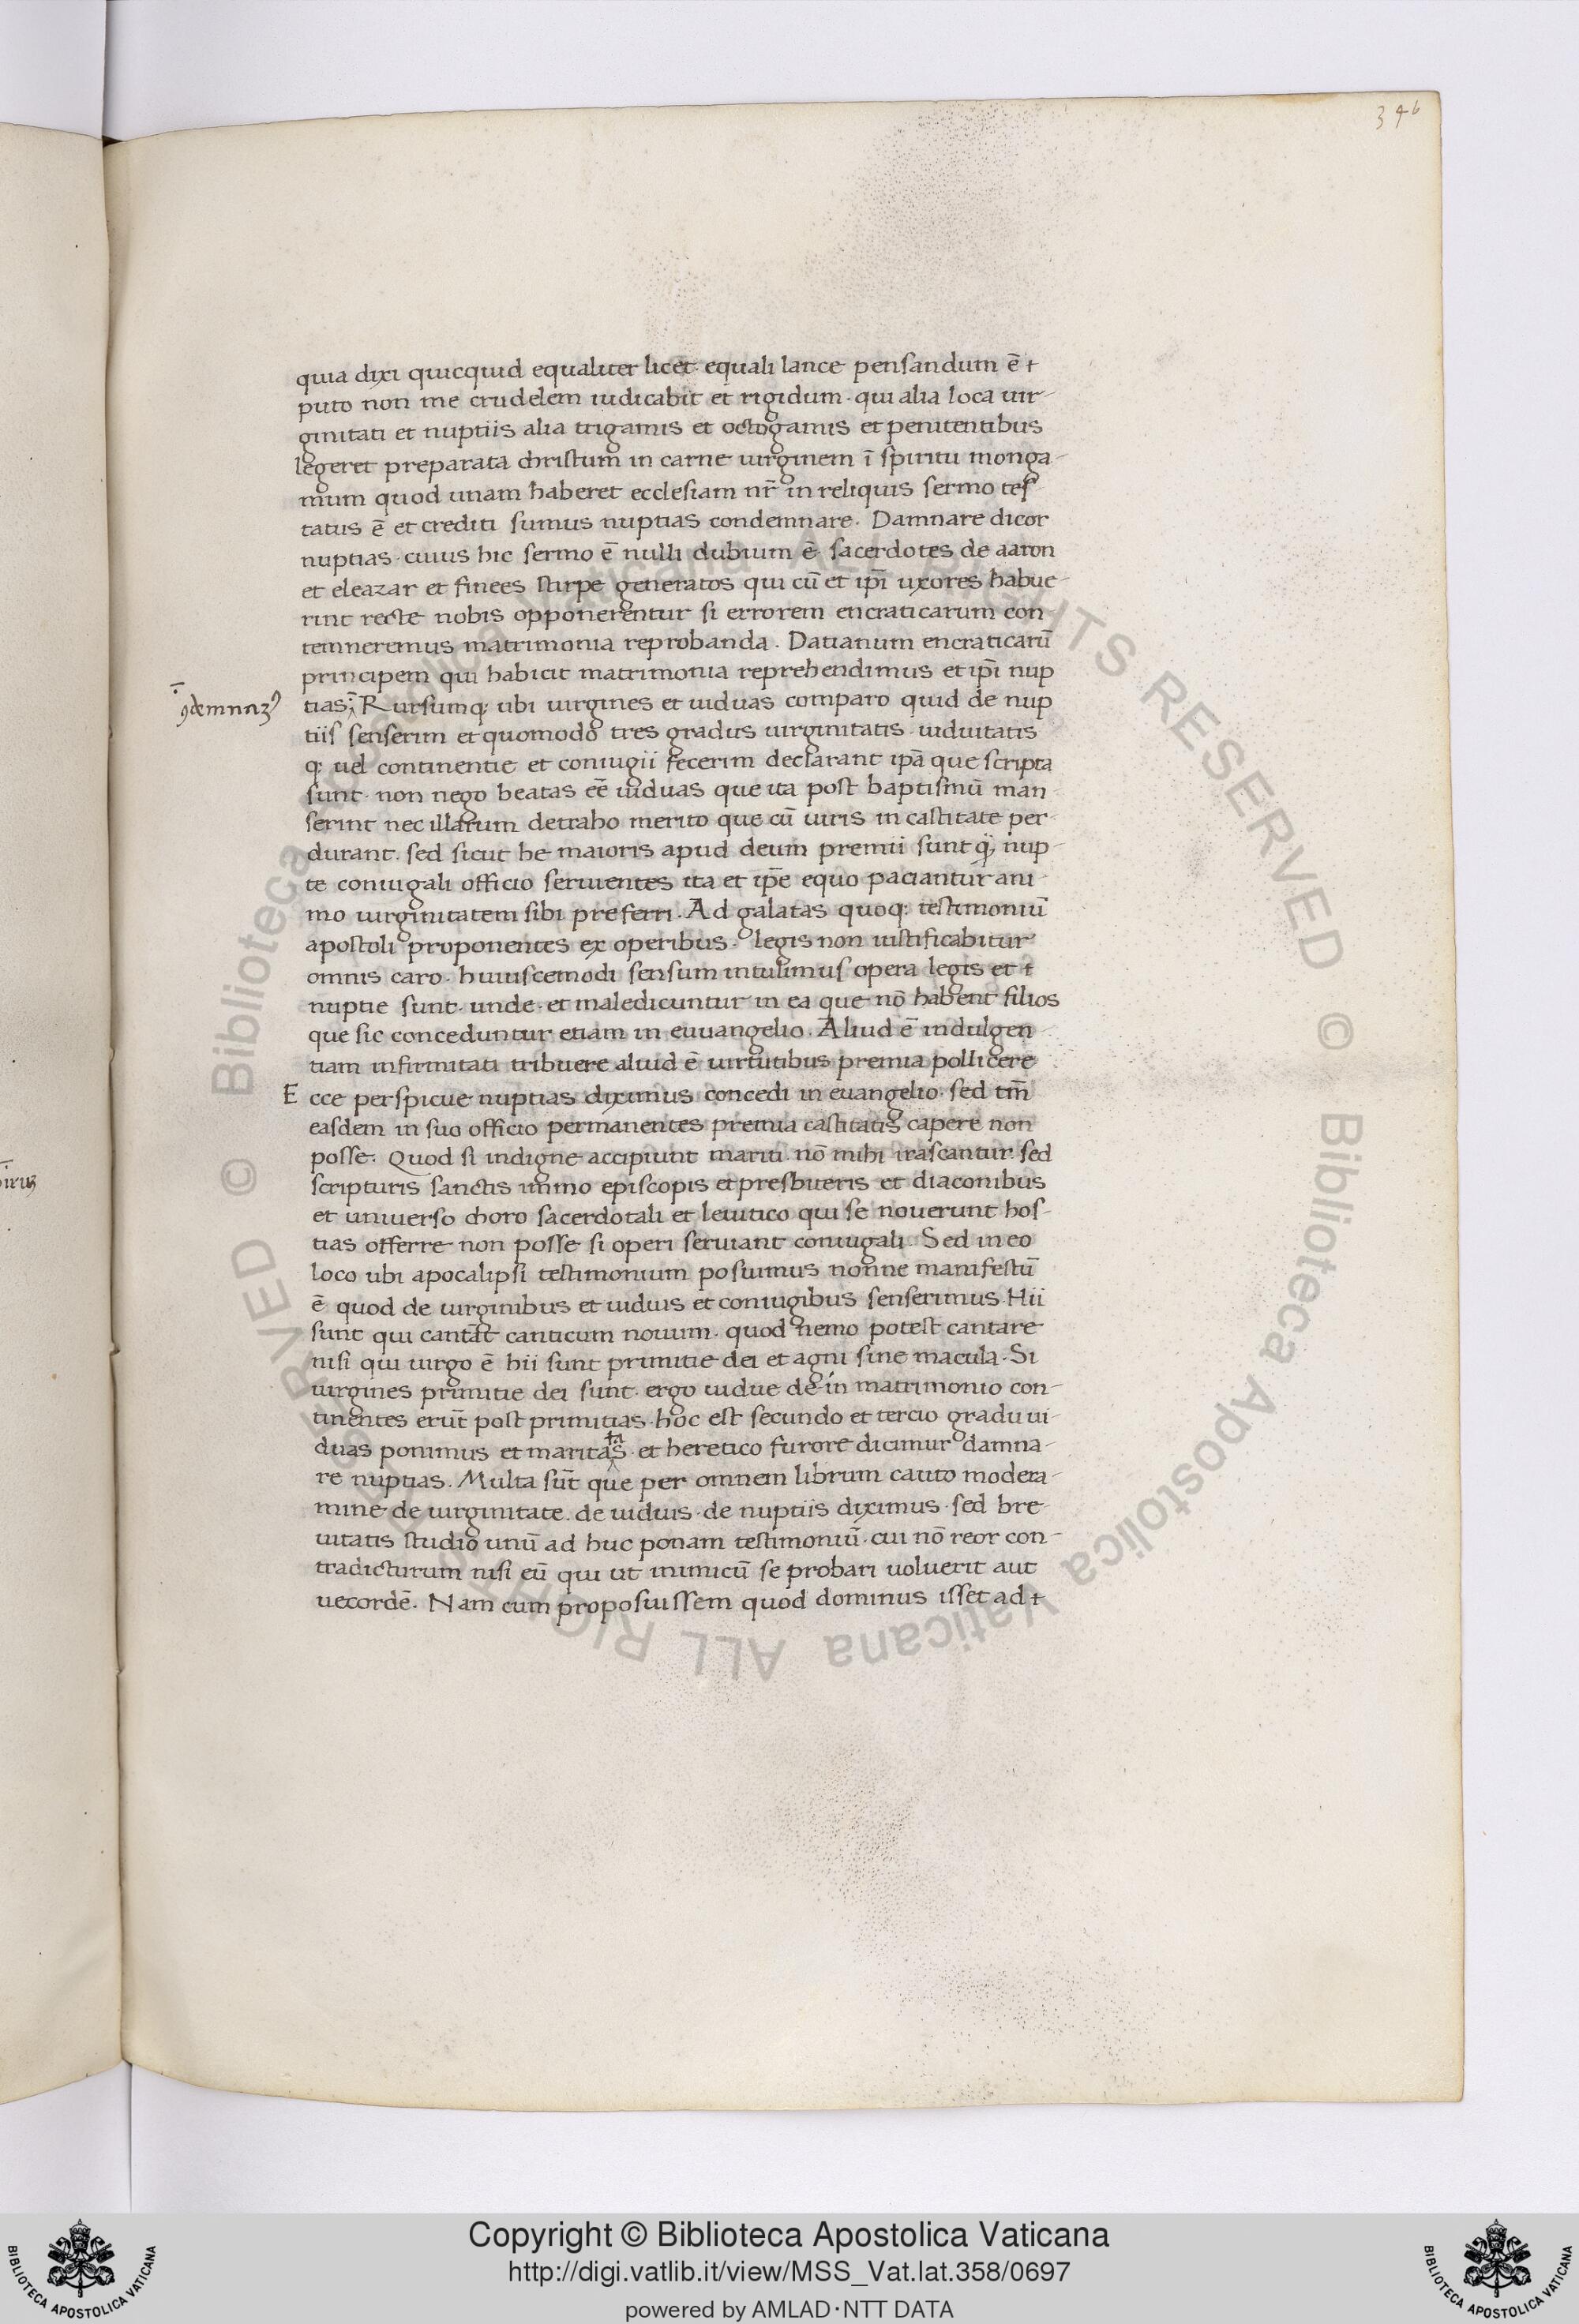 346
quia dixi quicquid equaliter licet· equali lance pensandum ē ⲧ
puto non me crudelem iudicabit et rigidum· qui alia loca uir-
ginitati et nuptiis alia trigamis et octogamis et penitentibus
legeret preparata christum in carne uirginem ī spiritu monga-
mum quod unam haberet ecclesiam nr̄ in reliquis sermo tes
tatus ē et crediti sumus nuptias condemnare. Damnare dicor
nuptias· cuius hic sermo ē nulli dubium ē· sacerdotes de aaron
et eleazar et finees stirpe generatos qui cū et ip̄i uxores habue-
rint recte nobis opponerentur si errorem encraticarum con
temneremus matrimonia reprobanda. Datianum encraticarū
principem qui habicit matrimonia reprehendimus et ip̄i nup
ꝯdemnaꝫ
tias. Rursumq; ubi uirgines et uiduas comparo quid de nup
tiis senserim et quomodo tres gradus uirginitatis· uiduitatis
q; uel continentie et coniugii fecerim declarant ip̄a que scripta
sunt· non nego beatas eē uiduas que ita post baptismū man
serint nec illarum detraho merito que cū uiris in castitate per-
durant. sed sicut he maioris apud deum premii sunt q̄ꝫ nup-
te coniugali officio seruientes ita et ip̄e equo paciantur ani
mo uirginitatem sibi preferri. Ad galatas quoq; testimoniū
apostoli proponentes ex operibus· legis non iustificabitur
omnis caro· huiuscemodi sensum intulimus opera legis et ⲧ
nuptie sunt· unde· et maledicuntur in ea que nō habent filios
que sic conceduntur etiam in euuangelio. Aliud ē indulgen
tiam infirmitati tribuere aliud ē uirtutibus premia pollicere
E cce perspicue nuptias diximus concedi in euangelio· sed tm̄
easdem in suo officio permanentes premia castitatis capere non
posse. Quod si indigne accipiunt mariti nō mihi irascantur sed
scripturis sanctis immo episcopis et presbiteris et diaconibus
et uniuerso choro sacerdotali et leuitico qui se nouerunt hos-
tias offerre non posse si operi seruiant coniugali. Sed in eo
loco ubi apocalipsi testimonium posuimus nonne manifestū
ē quod de uirginibus et uiduis et coniugibus senserimus. Hii
sunt qui cantāt canticum nouum· quod nemo potest cantare
nisi qui uirgo ē hii sunt primitie dei et agni sine macula. Si
uirgines primitie dei sunt· ergo uidue de in matrimonio con-
tinentes erūt post primitias· hoc est secundo et tercio gradu ui-
duas ponimus et maritatas· et heretico furore dicimur damna-
re nuptias. Multa sūt que per omnem librum cauto modera-
mine de uirginitate. de uiduis· de nuptiis diximus· sed bre-
uitatis studio unū ad huc ponam testimoniū· cui nō reor con-
tradicturum nisi eū qui ut inimicū se probari uoluerit aut
uecordē. Nam cum proposuissem quod dominus isset ad ⲧ
© Biblioteca Apostolica Vaticana ALL RIGHTS RESERVED
© Biblioteca Apostolica Vaticana ALL RIGHTS RESERVED
Copyright © Biblioteca Apostolica Vaticana
http://digi.vatlib.it/view/MSS_Vat.lat.358/0697
powered by AMLAD·NTT DATA
BIBLIOTECA APOSTOLICA VATICANA
BIBLIOTECA APOSTOLICA VATICANA